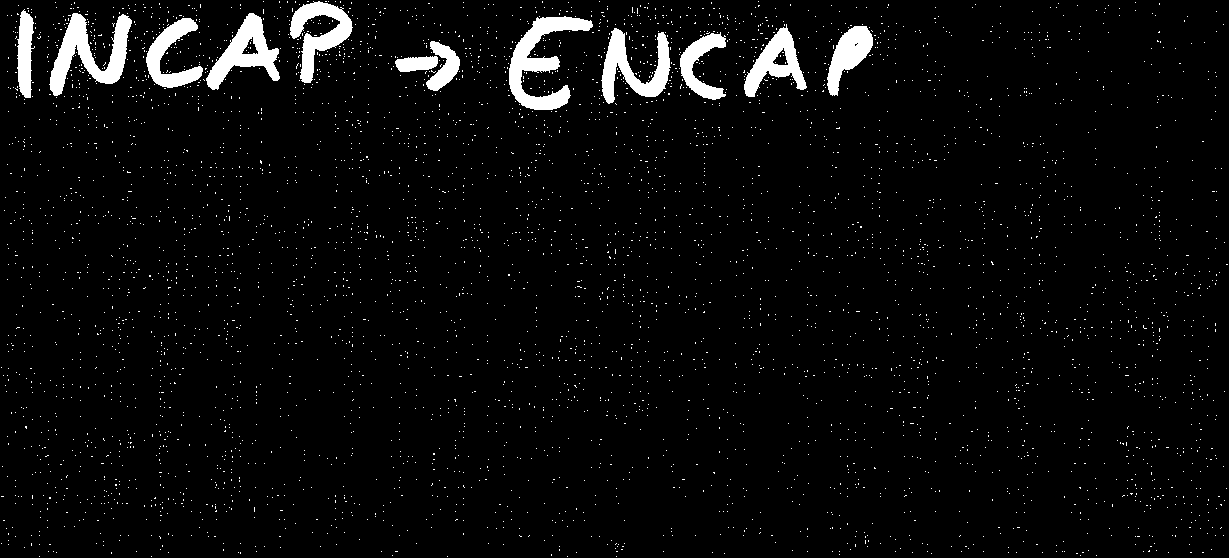 INCAP → ENCAP